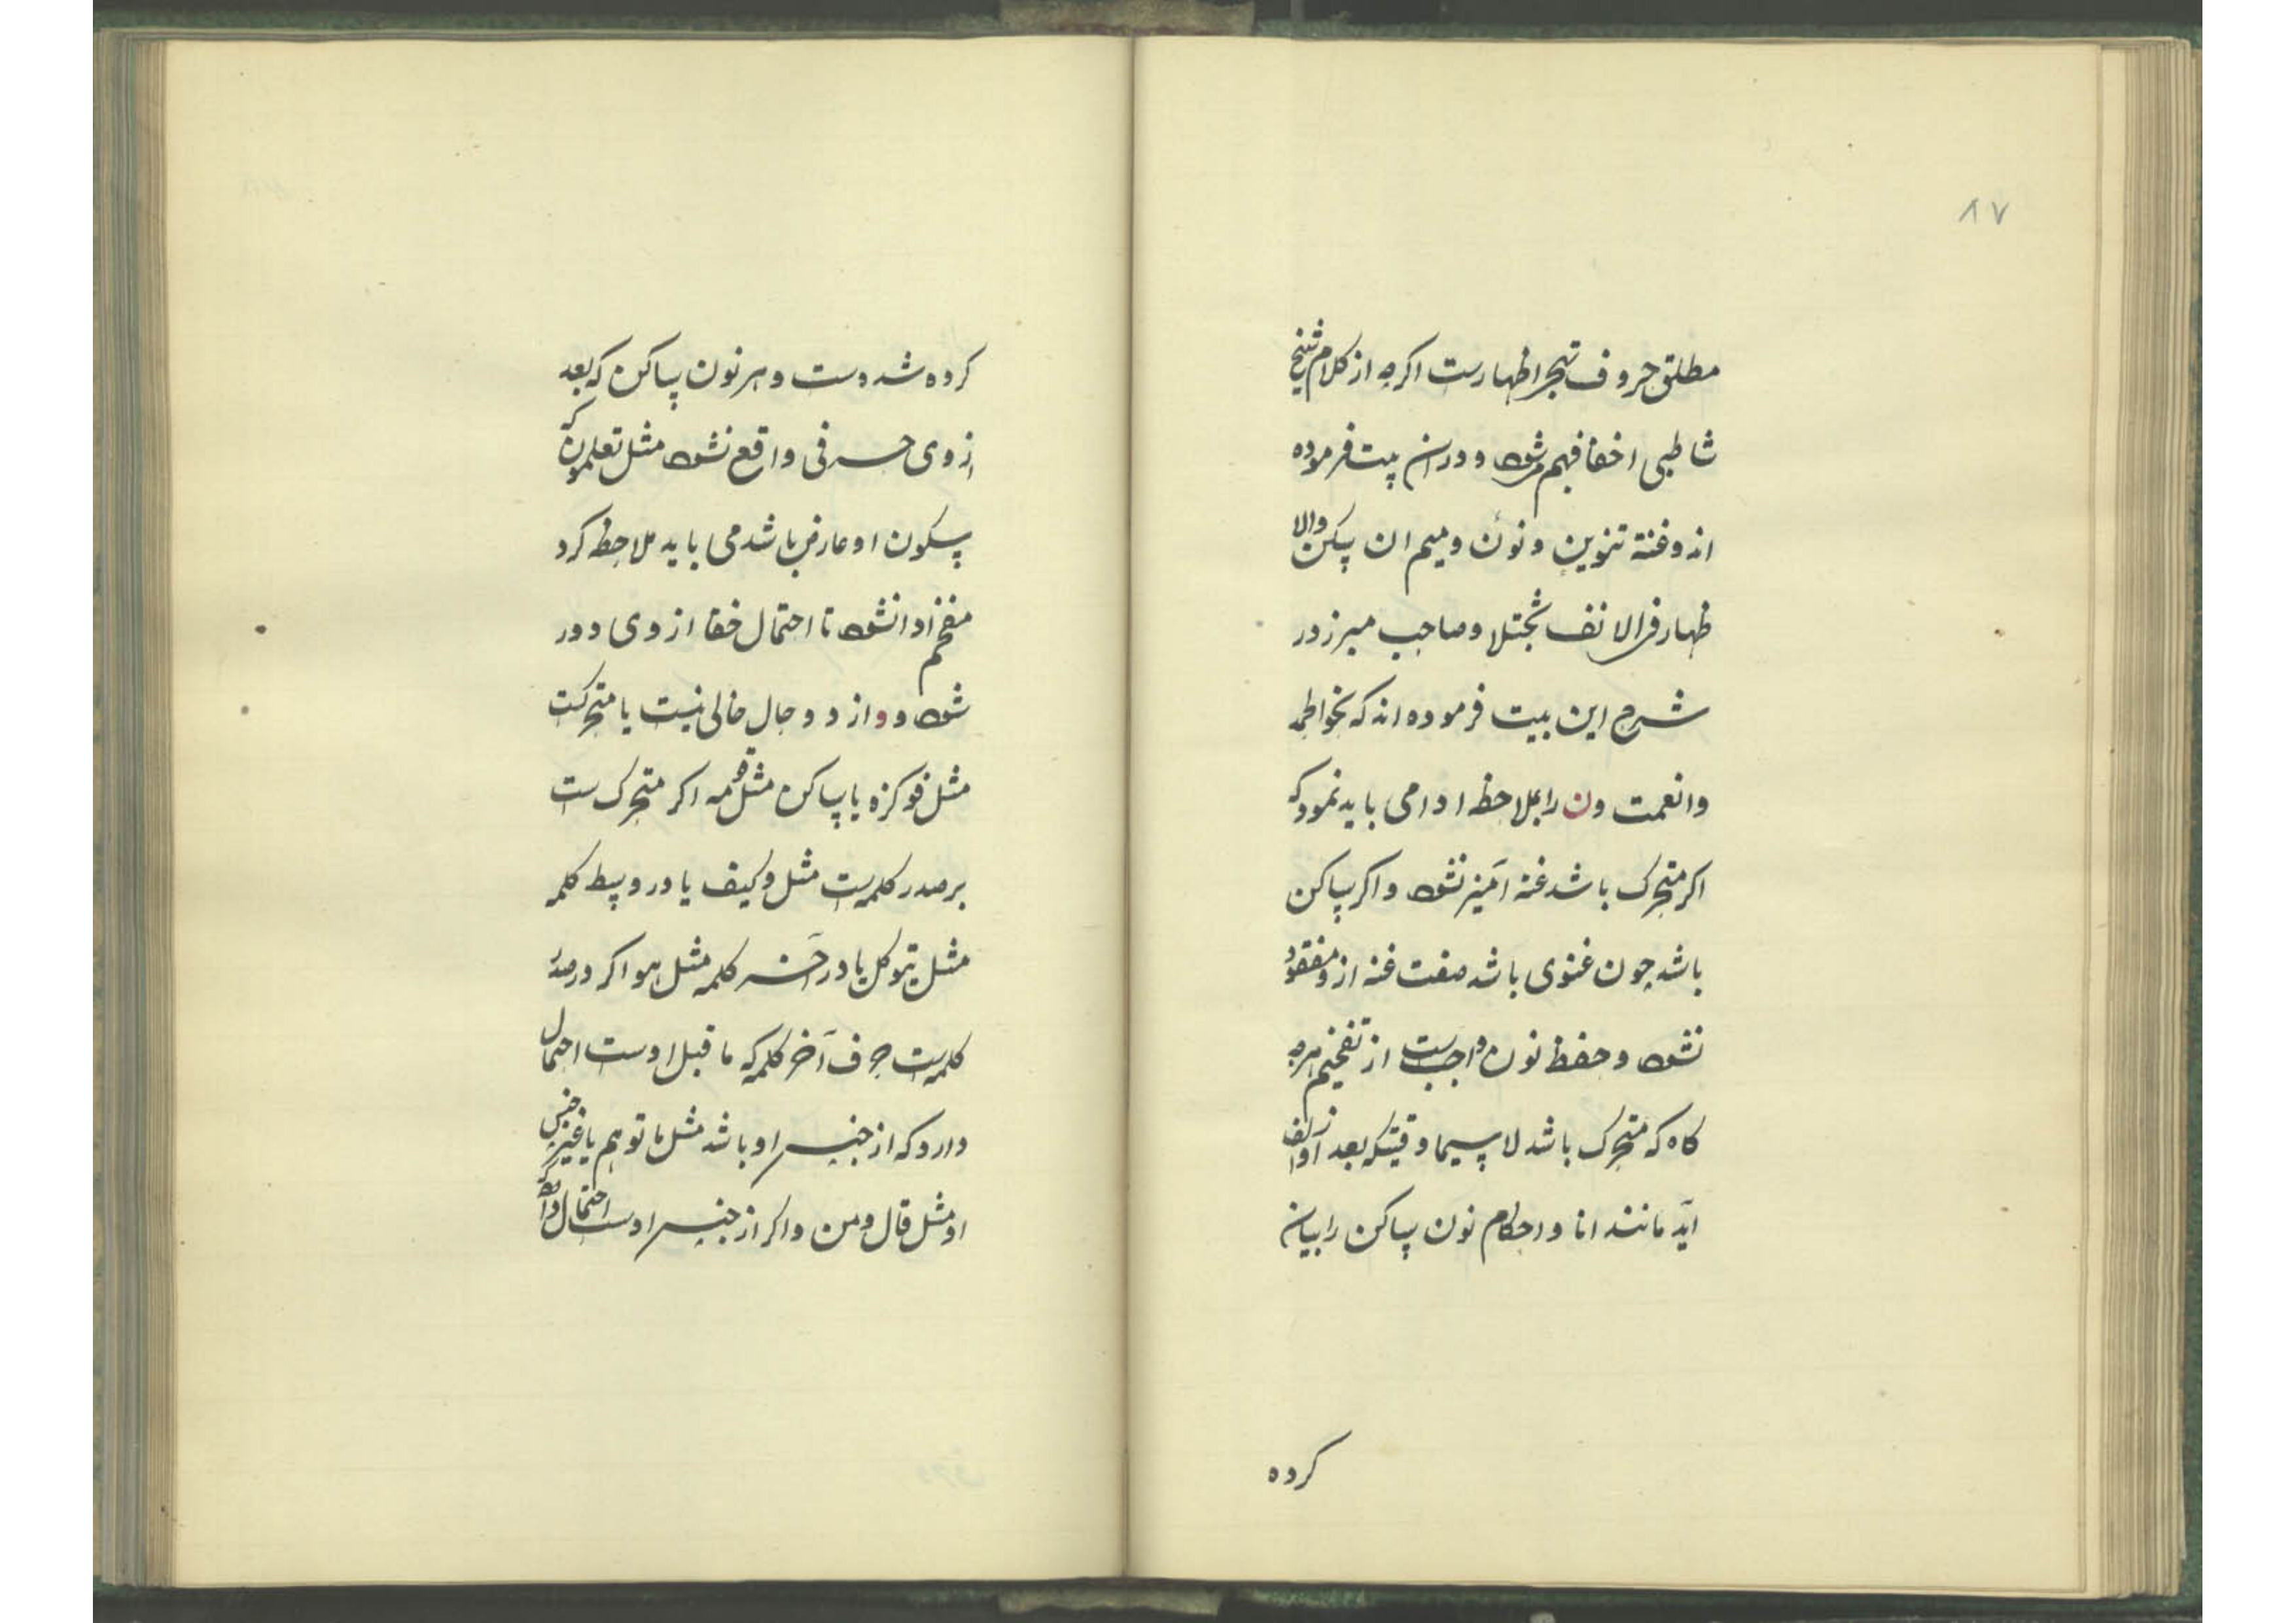 ۸۷
مطلق حروف تهجی اظهارست اکرچه از کلام شیخ
شاطبی اخفا فهم میشود و در ان بیت فرموده
اند وغنة تنوین و نون ومیم ان سکن والا
ظهار فی الانف یجتلا وصاحب مبرز در
شرح این بیت فرموده اند که بخواطر
وانعمت ون را بملاحظه ادا می باید نمود که
اکر متحرک باشد غنه آمیز نشود واکر ساکن
باشد چون غنوی باشد صفت غنه از و مفقود
نشود وحفظ نون واجبست از تفخیم هرچه
کاه که متحرک باشد لاسیما وقتیکه بعد از و الف
آید مانند انا و احکام نون ساکن را بیان
کرده
کرده شدست و هر نون ساکن که بعد
از وی حرفی واقع نشود مثل تعلمون که
سکون او عارض باشد می باید ملاحظه کرد
مفخم ادا نشود تا احتمال خفا از وی دور
شود و و از دو حال خالی نیست یا متحرکست
مثل فوکزه یا ساکن مثل قومه اکر متحرک ست
بر صدر کلمه‌ست مثل وکیف یا در وسط کلمه
مثل یتوکل یا در آخر کلمه مثل هو اکر در صدر
کلمه‌ست حرف آخر کلمه که ما قبل اوست احتمال
دارد که از جنس او باشد مثل ما توهم یا غیر جنس
او مثل قال ومن واکر از جنس اوست احتمال دارد که